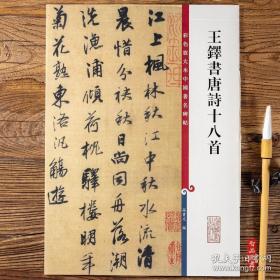 江上楓林秋江中秋水流清
晨惜分袂秋日尚同舟落潮
洗漁浦傾荷枕驛樓明年
菊花熟東洛汎觴遊
彩色放大本中國著名碑帖
王鐸書唐詩十八首